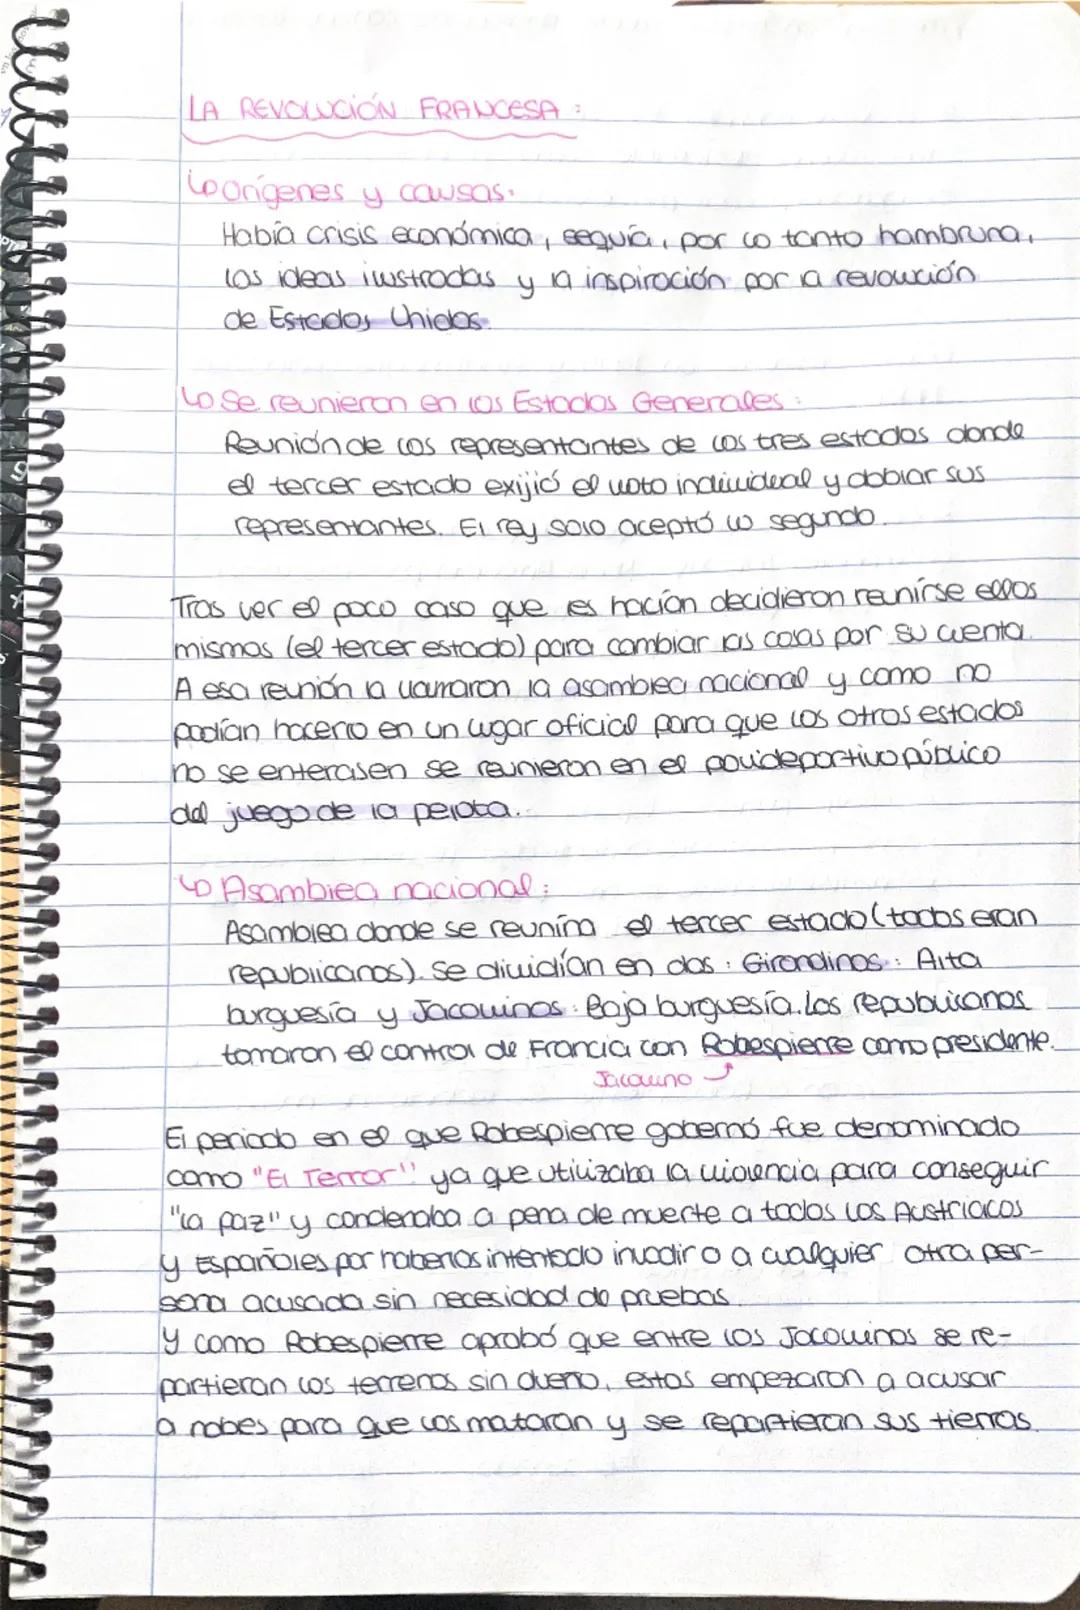 LA REVOLUCIÓN FRANCESA :
↳ Orígenes y causas.
Había crisis económica, sequía, por lo tanto hambruna,
las ideas ilustradas y la inspiración por la revolución
de Estados Unidos.
↳ Se reunieron en los Estados Generales :
Reunión de los representantes de los tres estados donde
el tercer estado exijió el voto individual y doblar sus
representantes. El rey solo aceptó lo segundo.
Tras ver el poco caso que les hacían decidieron reunirse ellos
mismos (el tercer estado) para cambiar las cosas por su cuenta.
A esa reunión la llamaron la asamblea nacional y como no
podían hacerlo en un lugar oficial para que los otros estados
no se enterasen se reunieron en el polideportivo público
del juego de la pelota.
↳ Asamblea nacional :
Asamblea donde se reunía el tercer estado (todos eran
republicanos). Se dividían en dos : Girondinos : Alta
burguesía y Jacovinos : Baja burguesía. Los republicanos
tomaron el control de Francia con Robespierre como presidente.
Jacovino
El periodo en el que Robespierre gobernó fue denominado
como "El Terror" ya que utilizaba la violencia para conseguir
"la paz" y condenaba a pena de muerte a todos los Austriacos
y Españoles por haberlos intentado invadir o a cualquier otra per-
sona acusada sin necesidad de pruebas.
Y como Robespierre aprobó que entre los Jacovinos se re-
partieran los terrenos sin dueño, estos empezaron a acusar
a nobles para que los mataran y se repartieran sus tierras.